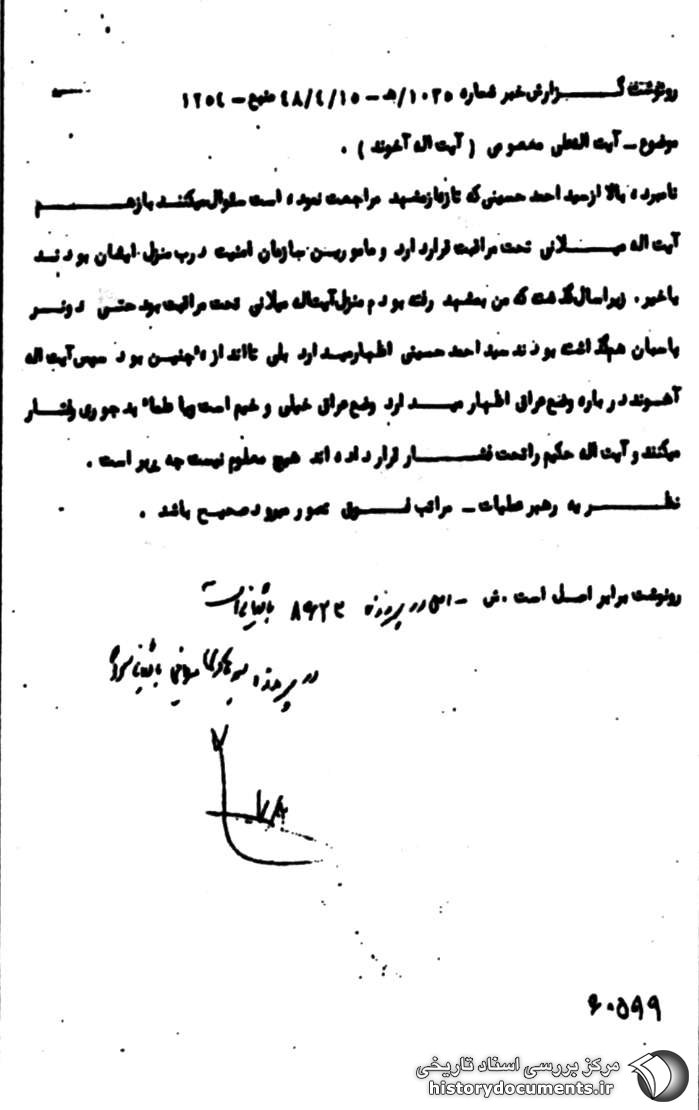 رونوشت گزارش خبر شماره ۱۰۲۵/هـ - ۴۸/۴/۱۵ منبع - ۱۲۵۴
موضوع - آیت اله علی معصومی ( آیت اله آخوند ) .
نامبرده بالا از سید احمد حسینی که تازه از مشهد مراجعت نموده است سئوال میکند باز هم
آیت اله میلانی تحت مراقبت قرار دارد و مامورین سازمان امنیت درب منزل ایشان بودند
یا خیر . زیرا سال گذشته که من بمشهد رفته بودم منزل آیت اله میلانی تحت مراقبت بود حتی دو نفر
پاسبان هم گذاشته بودند سید احمد حسینی اظهار میدارد بلی تا اندازه چنین بود سپس آیت اله
آخوند در باره وضع عراق اظهار میدارد وضع عراق خیلی وخیم است و با علماء بد جوری رفتار
میکنند و آیت اله حکیم را تحت فشار قرار داده اند هیچ معلوم نیست چه است .
نظریه رهبر عملیات - مراتب فوق تصور میرود صحیح باشد .
رونوشت برابر اصل است . ش - اصل در پرونده ۸۹۲۳ بایگانی است
در پرونده میلانی بایگانی شود
۷
۷۸
۶۰۵۹۹
مرکز بررسی اسناد تاریخی
historydocuments.ir